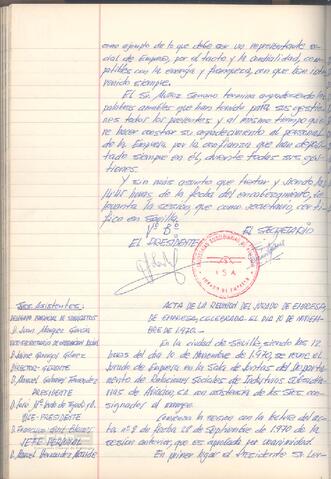 como ejemplo de lo que debe ser un representante so-
cial de Empresa, por el tacto y la cordialidad, com-
patibles con la energía y franqueza, con que han inter-
venido siempre.
El Sr. Muñoz Serrano termina agradeciendo las
palabras amables que han tenido para sus gestio-
nes todos los presentes y al mismo tiempo quie-
re hacer constar su agradecimiento al personal
de la Empresa por la confianza que han deposi-
tado siempre en él, durante todas sus ges-
tiones.
Y sin más asunto que tratar y siendo las
horas de la fecha del encabezamiento, se
levanta la sesión, que como secretario, certi-
fico en Sevilla.
Vº Bº
EL PRESIDENTE
EL SECRETARIO
Sres. Asistentes:
D. Juan Márquez García
D. Jaime
DIRECTOR-GERENTE
D. Manuel
D. José Mª
VICE-PRESIDENTE
D. Francisco
JEFE PERSONAL
D. Manuel Hernández
ACTA DE LA REUNIÓN DEL JURADO DE EMPRESA
DE EMPRESA, CELEBRADA EL DIA 10 DE NOVIEM-
BRE DE 1970.-
En la ciudad de Sevilla, siendo las 12
horas del día 10 de Noviembre de 1970, se reune el
Jurado de Empresa en la Sala de Juntas del Departa-
mento de Relaciones Sociales de Industrias Subsidia-
rias de Aviación, S.A. con asistencia de los Sres. con-
signados al margen.
Comienza la reunión con la lectura del ac-
ta nº 8 de fecha 28 de Septiembre de 1970 de la
sesión anterior, que es aprobada por unanimidad.
En primer lugar el Presidente Sr. Her-